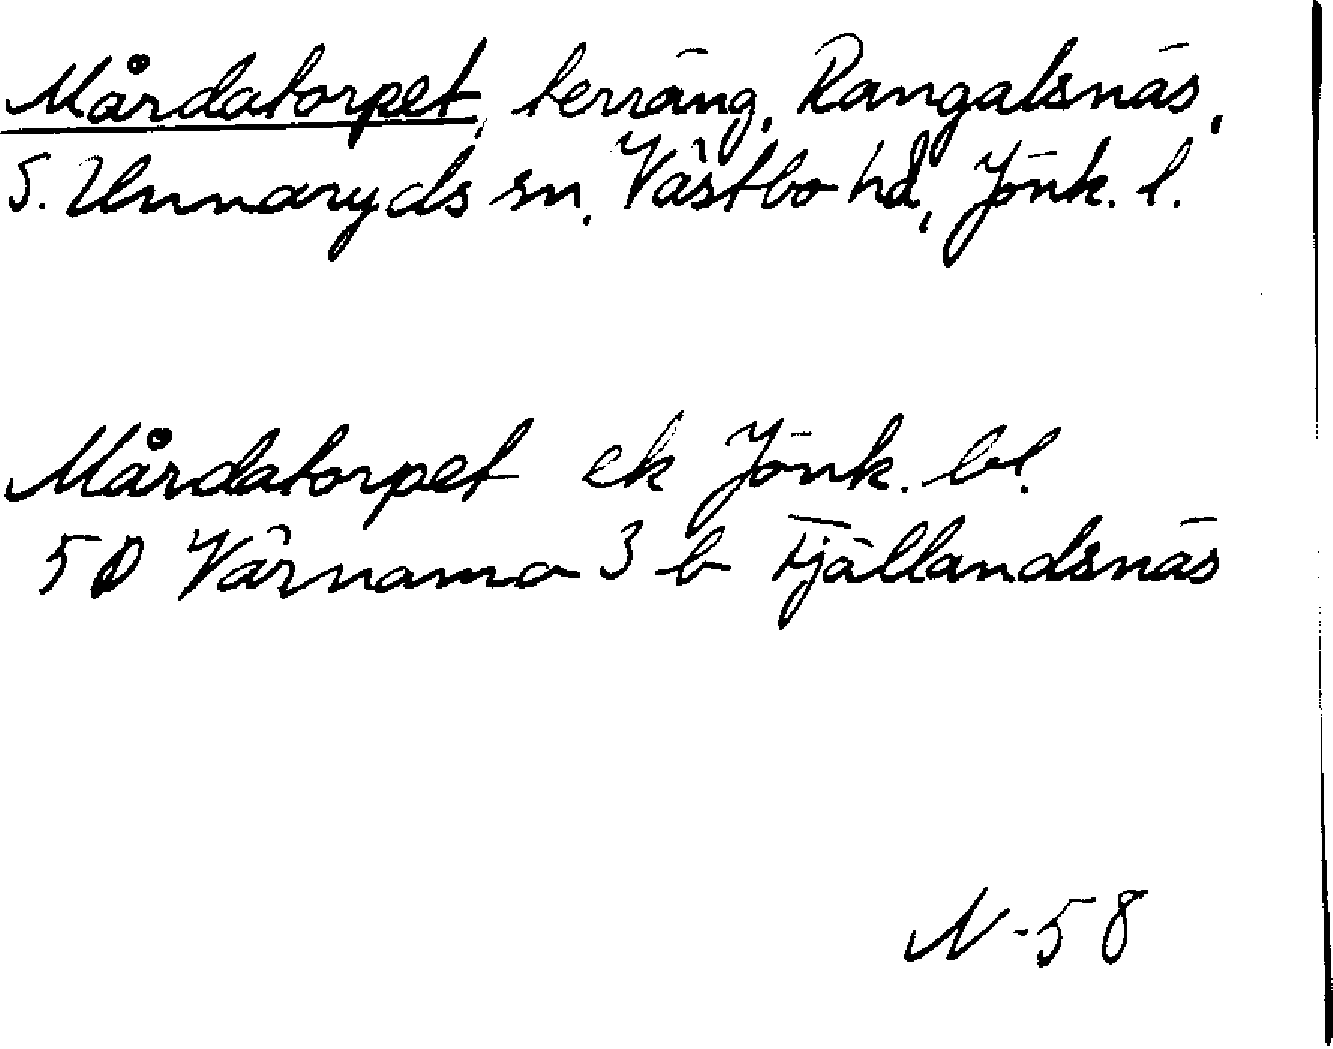 Mårdatorpet, terräng, Rangalsnäs,
S. Unnaryds sn, Västbo hd, Jönk. l.
Mårdatorpet ek Jönk. bl.
5D Värnamo 3 b Fjällandsnäs
N-58